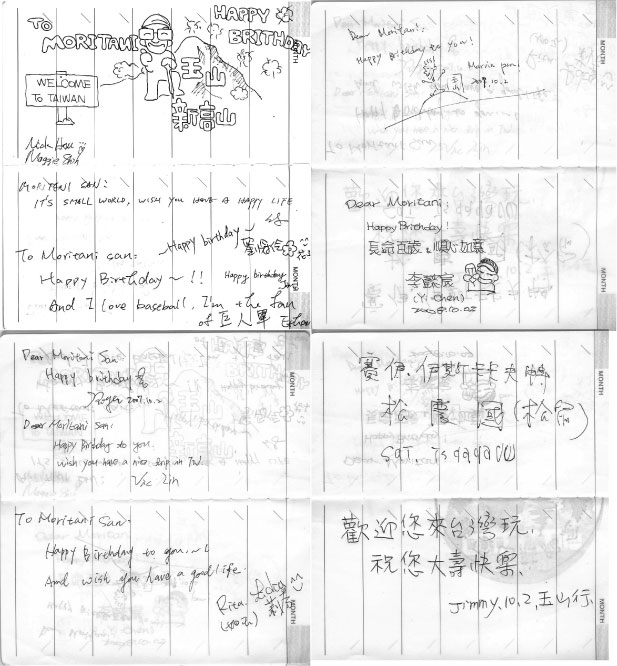 TO MORITANI
HAPPY BRITHDAY
WELCOME
TO TAIWAN
玉山
新高山
Nick Hsu
Maggie Shih
MORITANI SAN:
IT'S SMALL WORLD, WISH YOU HAVE A HAPPY LIFE
To Moritani san:
Happy birthday~
Happy Birthday~!!
Happy birthday
And I love baseball, I'm the fan
of 巨人軍
MONTH
Dear Moritani:
Happy Birthday to you!
2009.10.2
玉山
MONTH
Dear Moritani:
Happy Birthday!
長命百歲 & 順心如意
李懿宸
(Yi-Chen)
2009.10.02
MONTH
Dear Moritani San
Happy birthday
Roger 2009.10.2
Dear Moritani San:
Happy Birthday to you.
wish you have a nice trip in TW
Vic Lin
MONTH
To Moritani San:
Happy Birthday to you.~
And wish you have a good life.
Rita
MONTH
賽伊.伊斯卡卡夫特
松慶國(松宏)
MONTH
歡迎您來台灣玩.
祝您大壽快樂.
Jimmy.10.2.玉山行.
MONTH